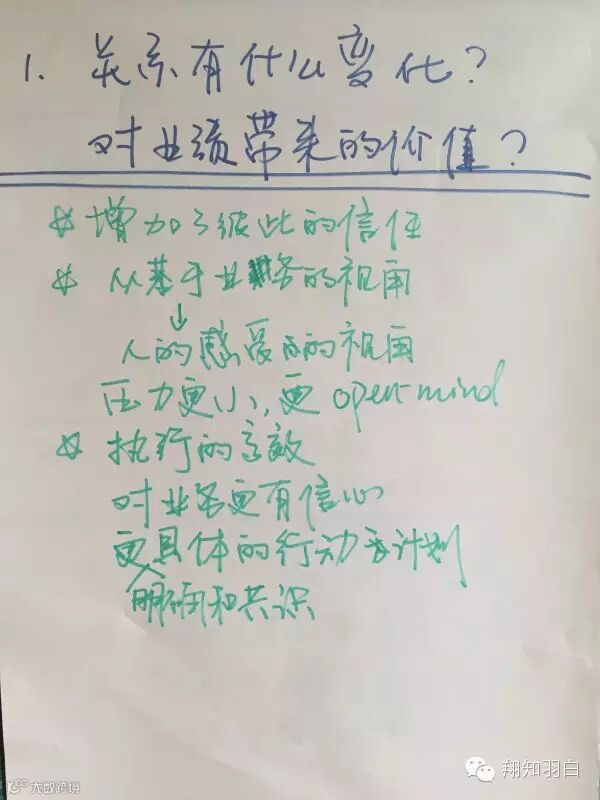 1. 关系有什么变化?
对业绩带来的价值?
☆增加了彼此的信任
☆从基于业务的视角
↓
人的感受的视角
压力更小,更 open mind
☆执行的高效
对业务更有信心
更具体的行动计划
明确和共识
翔知羽白
大数跨境